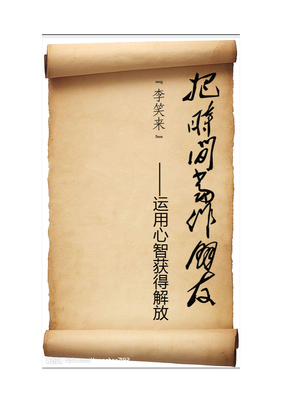 把時間当作朋友
『李笑来』
——运用心智获得解放